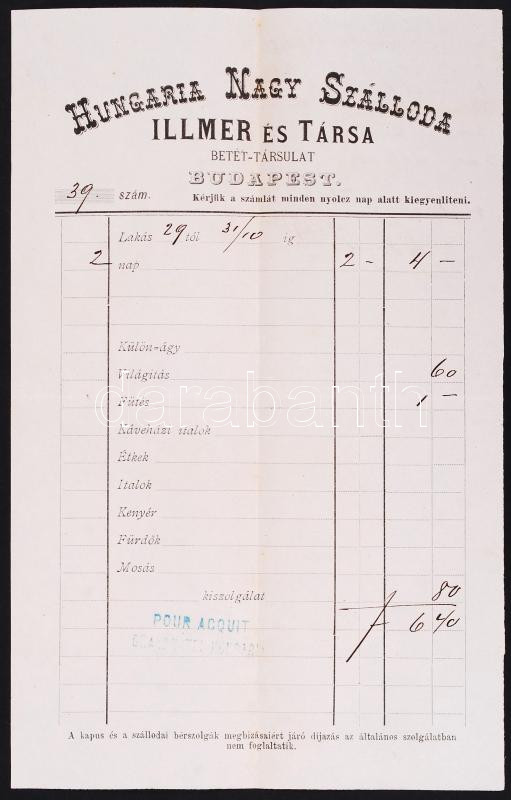 HUNGARIA NAGY SZÁLLODA
ILLMER ÉS TÁRSA
BETÉT-TÁRSULAT
BUDAPEST.
39. szám. Kérjük a számlát minden nyolcz nap alatt kiegyenlíteni.
Lakás 29 től 31/10 ig
2 nap 2 – 4 –
Külön-ágy
Világitás 60
Fűtés 1 –
Kávéházi italok
Étkek
Italok
Kenyér
Fürdők
Mosás
kiszolgálat 80
6 40
POUR ACQUIT
darabanth
A kapus és a szállodai bérszolgák megbizásaiért járó díjazás az általános szolgálatban
nem foglaltatik.